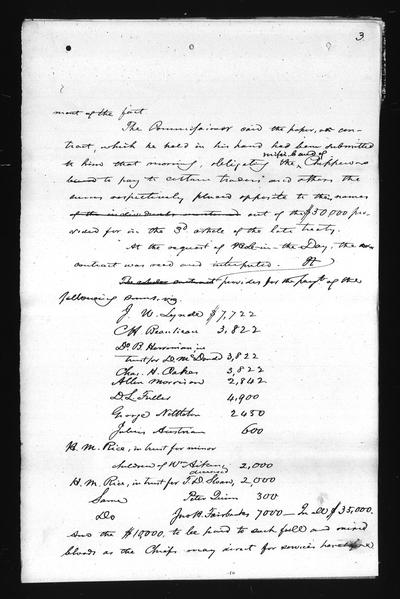 3
ment of the fact
The Commissioner said the paper, or con-
tract, which he held in his hand had been submitted
to him that morning, obligating the Missi. band of Chippewas
bound to pay to certain traders and others the
sums respectively placed opposite to their names
of the individuals out of the $50,000 pro-
vided for in the 3d article of the late treaty.
At the request of Hole-in-the Day, the
contract was read and interpreted. It
The contract provides for the paymt of the
following sums, viz.
J. W. Lynde $7,722
C.H. Beaulieau 3,822
Dr. B. Herriman in
trust for D. McDonald 3,822
Chas. H. Oakes 3,822
Allen Morrison 2,842
D.L. Fuller 4,900
George Nettleton 2450
Julius Austrian 600
H. M. Rice, in trust for minor
children of Wm Aitkin, deceased 2,000
H. M. Rice, in trust for T.D. Sloan, 2,000
Same Peter Quinn 300
Do Jno H. Fairbanks 7000 — In all $35,000.
And the $10000. to be paid to such full and mixed
bloods as the Chiefs may direct for services heretofore